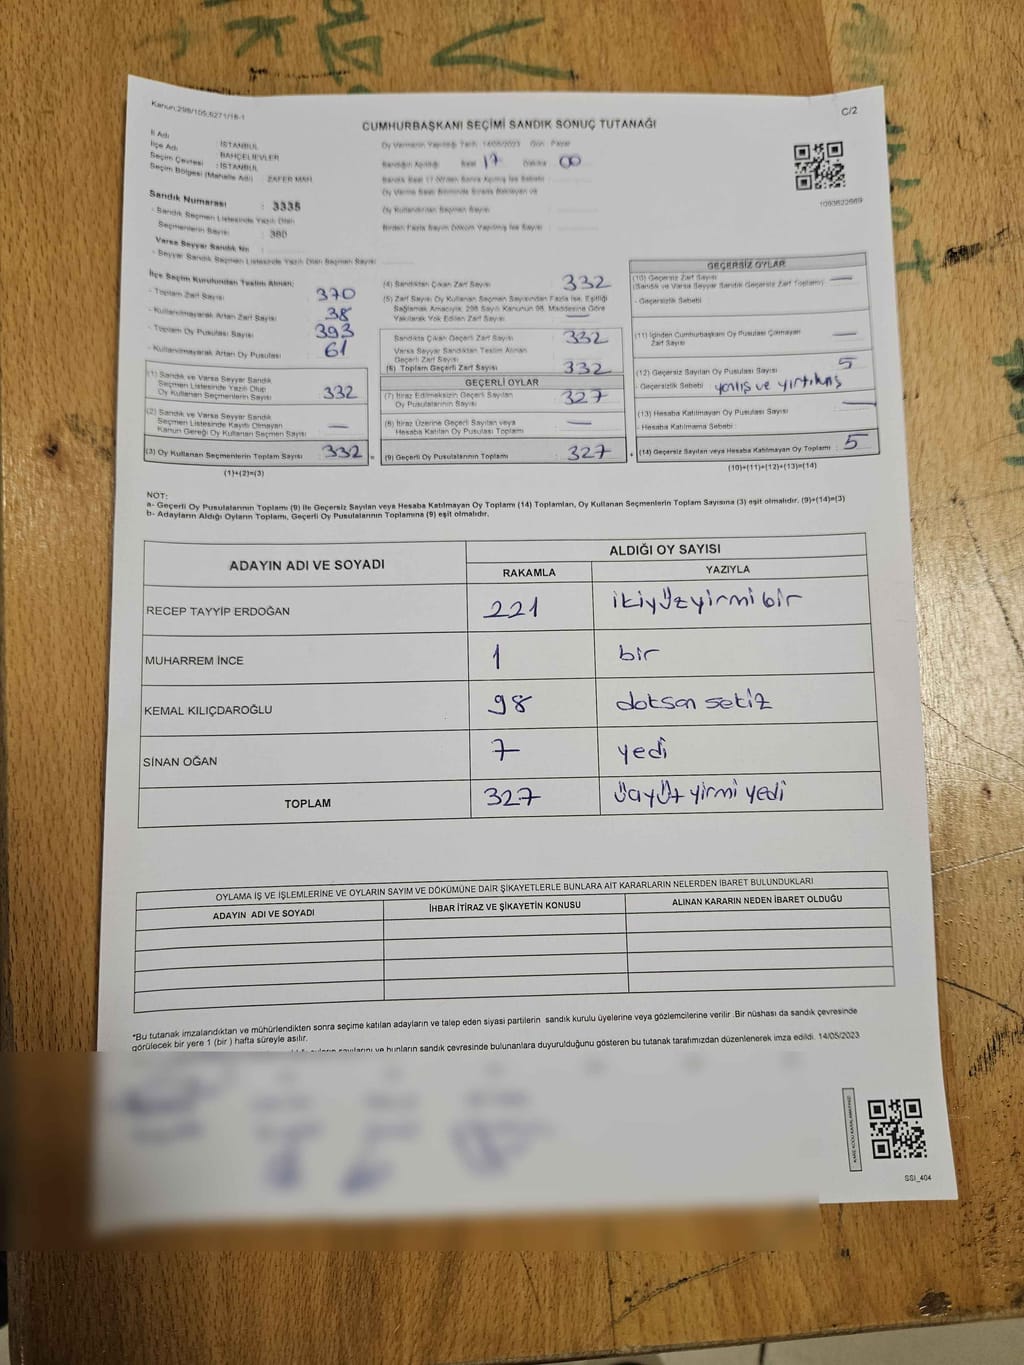 Kanun:298/105;6271/16-1
C/2
CUMHURBAŞKANI SEÇİMİ SANDIK SONUÇ TUTANAĞI
İl Adı : İSTANBUL
İlçe Adı : BAHÇELİEVLER
Seçim Çevresi : İSTANBUL
Seçim Bölgesi (Mahalle Adı) : ZAFER MAH.
Oy Vermenin Yapıldığı Tarih 14/05/2023 Gün Pazar
Sandığın Açıldığı Saat 17 Dakika 00
1093622669
Sandık Numarası : 3335
- Sandık Seçmen Listesinde Yazılı Olan
Seçmenlerin Sayısı : 380
Varsa Seyyar Sandık No :
- Seyyar Sandık Seçmen Listesinde Yazılı Olan Seçmen Sayısı
Oy Kullandırılan Seçmen Sayısı
Birden Fazla Sayım Döküm Yapılmış İse Sayısı
İlçe Seçim Kurulundan Teslim Alınan;
- Toplam Zarf Sayısı : 370
- Kullanılmayarak Artan Zarf Sayısı : 38
- Toplam Oy Pusulası Sayısı : 393
- Kullanılmayarak Artan Oy Pusulası : 61
(1) Sandık ve Varsa Seyyar Sandık
Seçmen Listesinde Yazılı Olup
Oy Kullanan Seçmenlerin Sayısı : 332
(2) Sandık ve Varsa Seyyar Sandık
Seçmen Listesinde Kayıtlı Olmayan
Kanun Gereği Oy Kullanan Seçmen Sayısı : —
(3) Oy Kullanan Seçmenlerin Toplam Sayısı : 332 =
(1)+(2)=(3)
(4) Sandıktan Çıkan Zarf Sayısı : 332
(5) Zarf Sayısı Oy Kullanan Seçmen Sayısından Fazla İse, Eşitliği
Sağlamak Amacıyla, 298 Sayılı Kanunun 98. Maddesine Göre
Yakılarak Yok Edilen Zarf Sayısı : —
Sandıkta Çıkan Geçerli Zarf Sayısı : 332
Varsa Seyyar Sandıktan Teslim Alınan
Geçerli Zarf Sayısı
(6) Toplam Geçerli Zarf Sayısı : 332
GEÇERLİ OYLAR
(7) İtiraz Edilmeksizin Geçerli Sayılan
Oy Pusulalarının Sayısı : 327
(8) İtiraz Üzerine Geçerli Sayılan veya
Hesaba Katılan Oy Pusulası Toplamı : —
(9) Geçerli Oy Pusulalarının Toplamı : 327 +
GEÇERSİZ OYLAR
(10) Geçersiz Zarf Sayısı : —
(Sandık ve Varsa Seyyar Sandık Geçersiz Zarf Toplamı)
- Geçersizlik Sebebi :
(11) İçinden Cumhurbaşkanı Oy Pusulası Çıkmayan
Zarf Sayısı : —
(12) Geçersiz Sayılan Oy Pusulası Sayısı : 5
- Geçersizlik Sebebi : yanlış ve yırtılmış
(13) Hesaba Katılmayan Oy Pusulası Sayısı : —
- Hesaba Katılmama Sebebi :
(14) Geçersiz Sayılan veya Hesaba Katılmayan Oy Toplamı : 5
(10)+(11)+(12)+(13)=(14)
NOT:
a- Geçerli Oy Pusulalarının Toplamı (9) ile Geçersiz Sayılan veya Hesaba Katılmayan Oy Toplamı (14) Toplamları, Oy Kullanan Seçmenlerin Toplam Sayısına (3) eşit olmalıdır. (9)+(14)=(3)
b- Adayların Aldığı Oyların Toplamı, Geçerli Oy Pusulalarının Toplamına (9) eşit olmalıdır.
ADAYIN ADI VE SOYADI
ALDIĞI OY SAYISI
RAKAMLA YAZIYLA
RECEP TAYYİP ERDOĞAN 221 ikiyüzyirmibir
MUHARREM İNCE 1 bir
KEMAL KILIÇDAROĞLU 98 doksan sekiz
SİNAN OĞAN 7 yedi
TOPLAM 327 üçyüz yirmi yedi
OYLAMA İŞ VE İŞLEMLERİNE VE OYLARIN SAYIM VE DÖKÜMÜNE DAİR ŞİKAYETLERLE BUNLARA AİT KARARLARIN NELERDEN İBARET BULUNDUKLARI
ADAYIN ADI VE SOYADI İHBAR İTİRAZ VE ŞİKAYETİN KONUSU ALINAN KARARIN NEDEN İBARET OLDUĞU
*Bu tutanak imzalandıktan ve mühürlendikten sonra seçime katılan adayların ve talep eden siyasi partilerin sandık kurulu üyelerine veya gözlemcilerine verilir .Bir nüshası da sandık çevresinde
görülecek bir yere 1 (bir ) hafta süreyle asılır.
ve bunların sandık çevresinde bulunanlara duyurulduğunu gösteren bu tutanak tarafımızdan düzenlenerek imza edildi. 14/05/2023
SSI_404